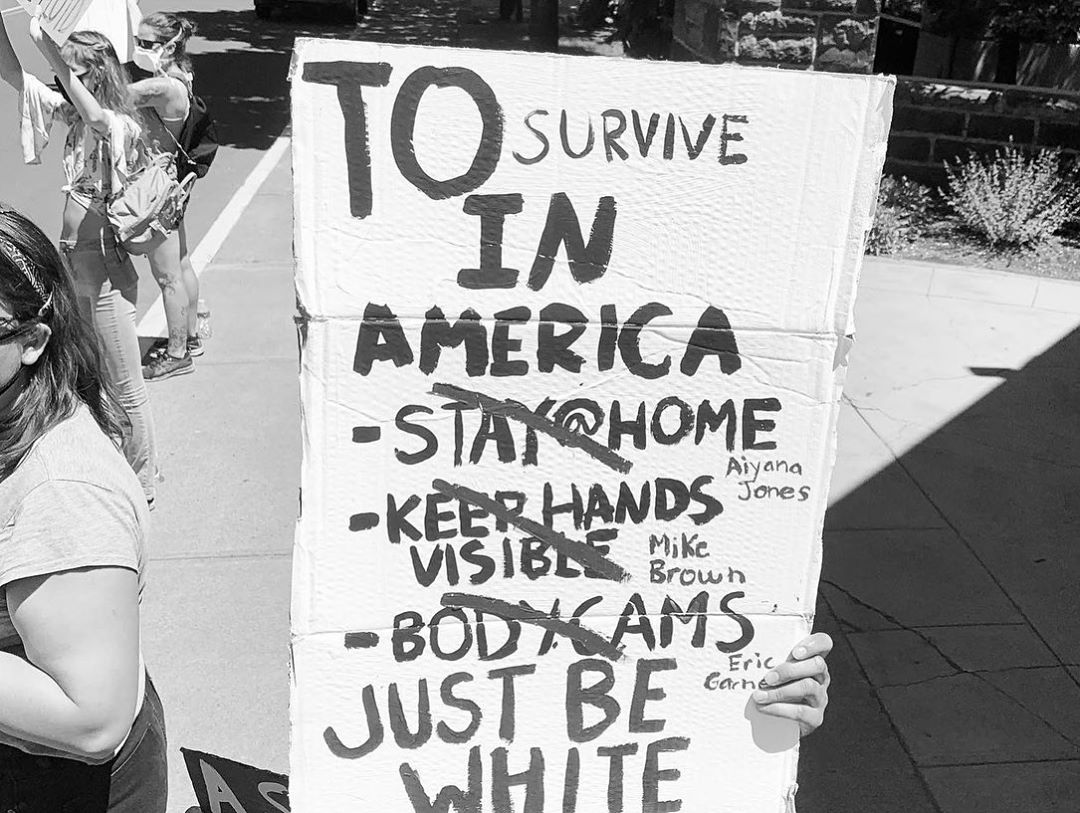 TO SURVIVE
IN
AMERICA
- STAY@HOME
Aiyana
Jones
- KEEP HANDS
VISIBLE
Mike
Brown
- BODYCAMS
Eric
Garne
JUST BE
WHITE